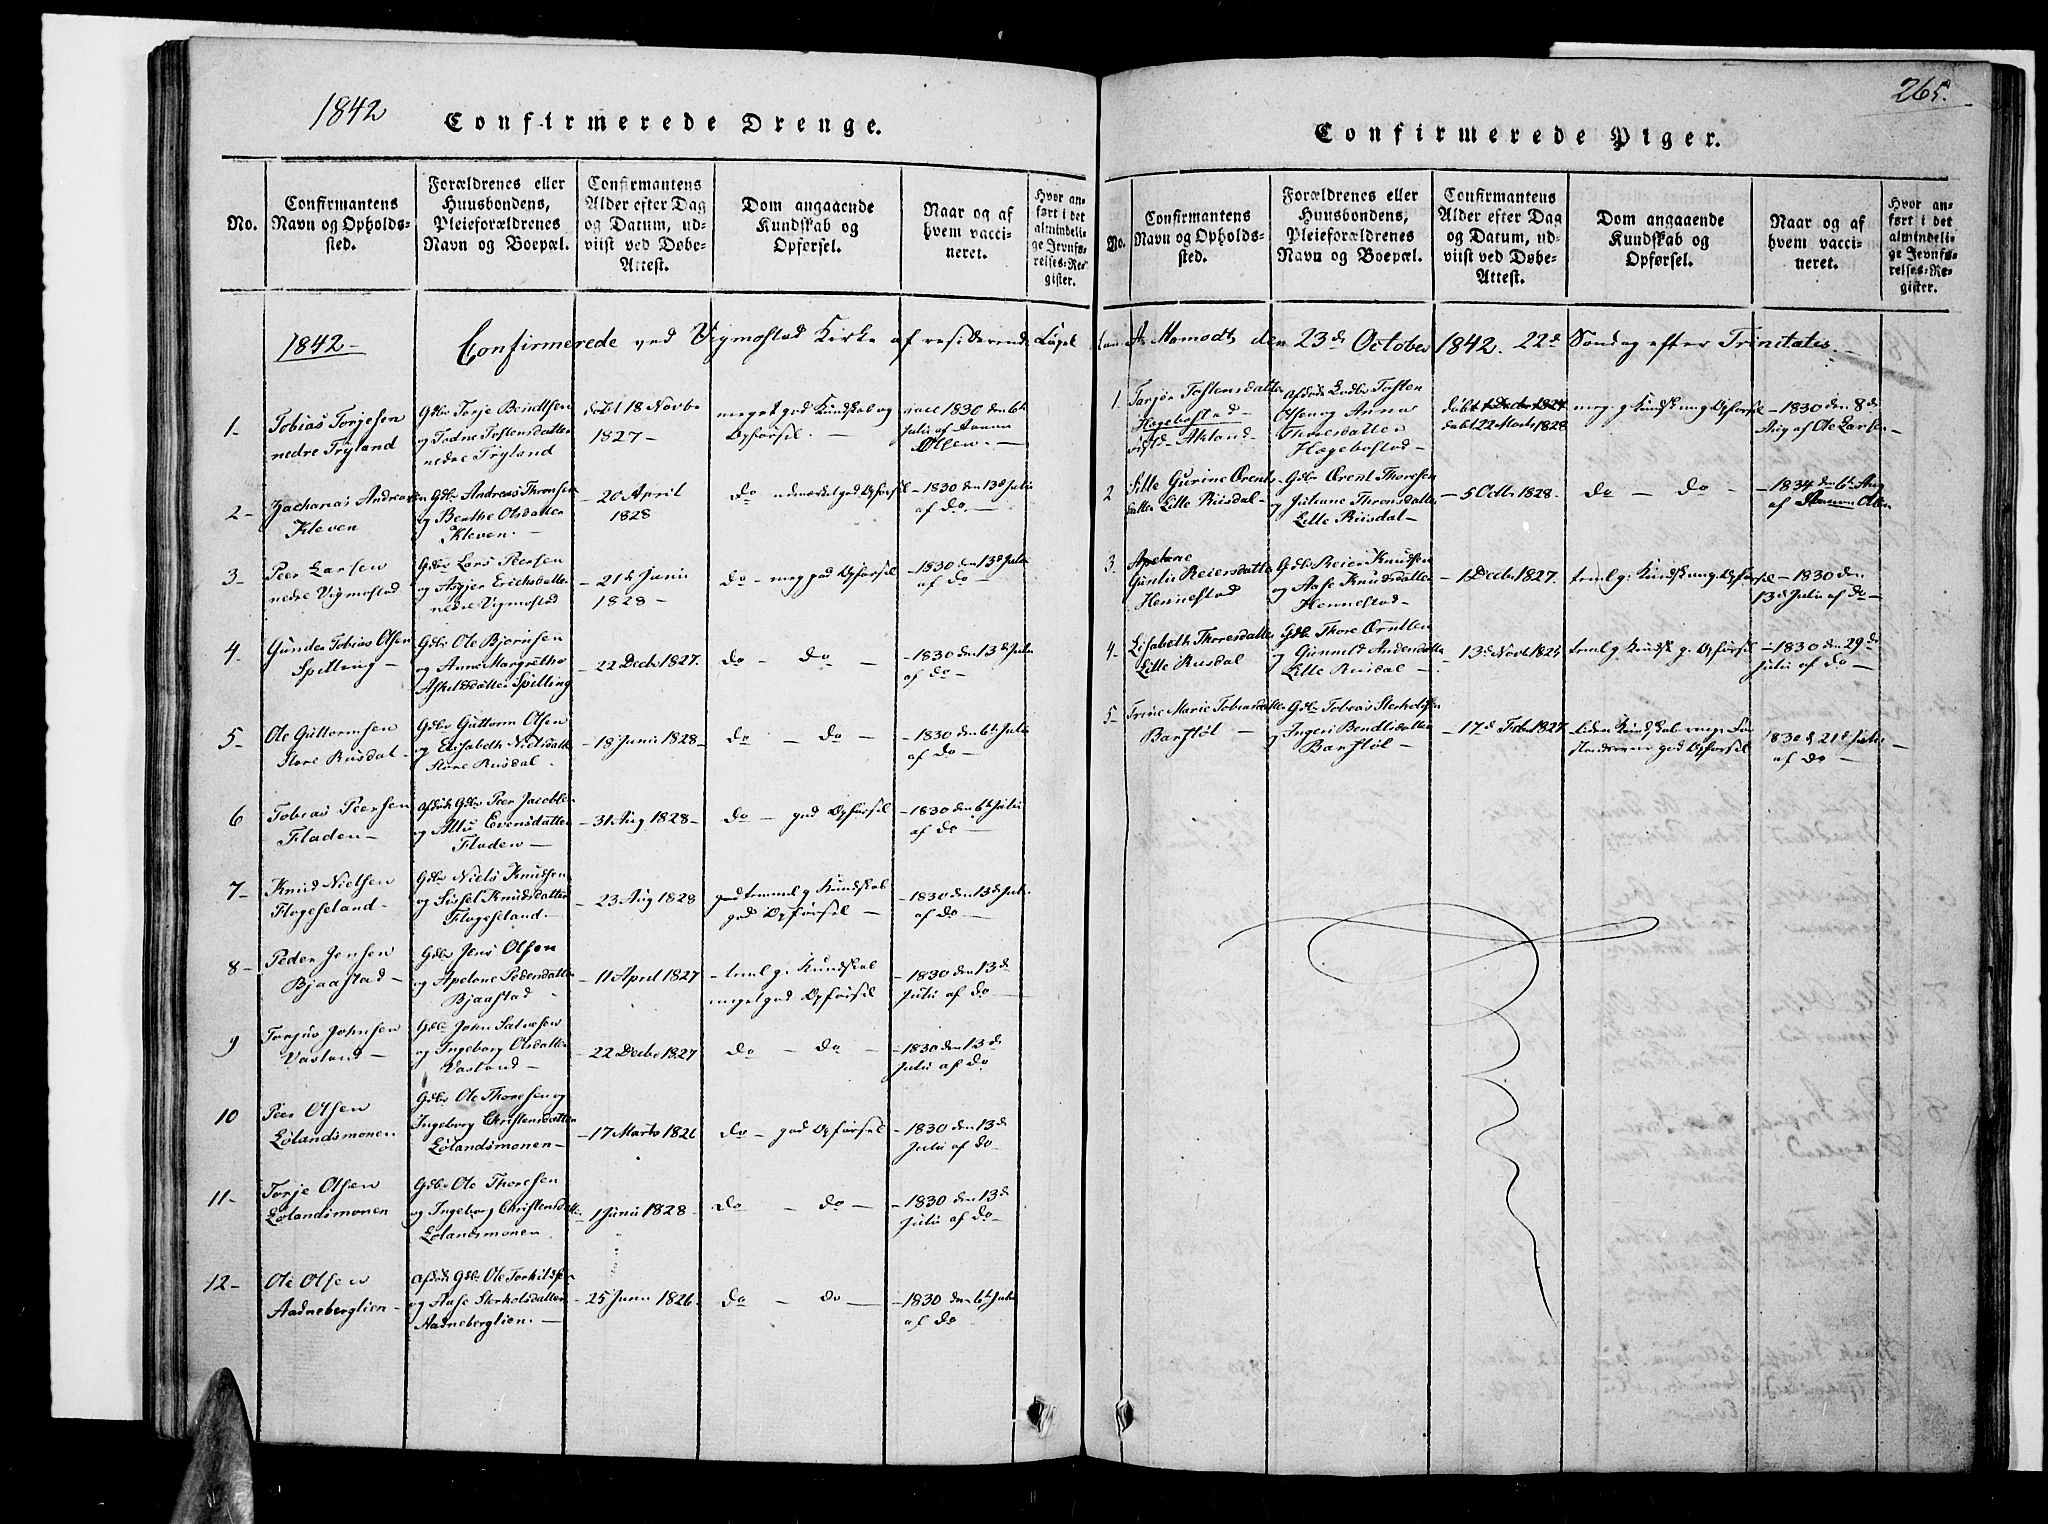 1842
Confirmerede Drenge.
No.
Confirmantens
Navn og Opholds-
sted.
Forældrenes eller
Huusbondens,
Pleieforældrenes
Navn og Boepæl.
Confirmantens
Alder efter Dag
og Datum, ud-
viist ved Døbe-
Attest.
Dom angaaende
Kundskab og
Opførsel.
Naar og af
hvem vacci-
neret.
Hvor an-
ført i det
almindeli-
ge Jevnfø-
relses-Re-
gister.
1842 - Confirmerede ved Vigmostad Kirke af residerende
1- Tobias Torjesen
nedre Tryland
Gdbr Torje Bendtsen
og Todne Tostensdatter
nedre Tryland
døbt 18 Novbr
1827 -
meget god Kundskab og
Opførsel. -
vacc 1830 den 6te
Julii af
Olsen. -
2- Zacharias Andreasen
Kleven
Gdbr Andreas Thronsen
og Berthe Olsdatter
Kleven. -
- 20 April
1828
do udmærket god Opførsel
- 1830 den 13de Julii
af do. -
3- Peer Larsen
nedre Vigmostad
Gdbr Lars Peersen
og Asgjer Erichsdatter
nedre Vigmostad
- 21de Junii
1828 -
do - meg god Opførsel
- 1830 den 13de Julii
af do -
4- Gunder Tobias Olsen
Spilling -
Gdbr Ole Bjørnsen
og Anne Margrethe
Askildsdatter Spilling
- 22 Decbr 1827.
do - do -
- 1830 den 13de Julii
af do -
5- Ole Guttormsen
Store Ruisdal.
Gdbr Guttorm Olsen
og Elisabeth Nielsdatter
Store Ruisdal.
- 18 Junii 1828 -
do - do -
- 1830 den 6te Julii
af do -
6 Tobias Peersen
Fladen -
Afdøde Gdbr Peer Jacobsen
og Evensdatter
Fladen -
- 31 Aug 1828 -
do - god Opførsel
- 1830 den 6te Julii
af do -
7- Knud Nielsen
Flogeseland -
Gdbr Niels Knudsen
og Sissel Knudsdatter
Flogeseland.
- 23 Aug 1828
god temmel g Kundskab
god Opførsel -
- 1830 den 13de Julii
af do. -
8- Peder Jensen
Bjaastad -
Gdbr Jens Olsen
og Apelone Pedersdatter
Bjaastad -
- 11 April 1827
- teml g. Kundskab
meget god Opførsel
- 1830 den 13 de
Julii af do -
9 Torjus Johnsen
Vasland -
Gdbr John Salvesen
og Ingeborg Olsdatter
Vasland -
- 22 Decbr 1827
do - do -
- 1830 den 13 de
Julii af do
10 Peer Olsen
Lølandsmonen
Gdbr Ole Thoresen og
Ingeborg Christensdatter
Lølandsmonen -
- 17 Marts 1826
do - god Opførsel
- 1830 den 13 de
Julii af do -
11- Torje Olsen
Lølandsmonen
Gdbr Ole Thoresen
og Ingeborg Christensdatter
Lølandsmonen.
- 1 Junii 1828 -
do - do -
- 1830 den 13 de
Julii af do
12- Ole Olsen
Aadneberglien -
Afdøde Gdbr Ole Torkildsen
og Aase Sterkolsdatter
Aadneberglien. -
- 25 Junii 1826 -
do - do -
- 1830 den 6te Julii
af do
265.
Confirmerede Piger.
No.
Confirmantens
Navn og Opholds-
sted.
Forældrenes eller
Huusbondens,
Pleieforældrenes
Navn og Boepæl.
Confirmantens
Alder efter Dag
og Datum, ud-
viist ved Døbe-
Attest.
Dom angaaende
Kundskab og
Opførsel.
Naar og af
hvem vacci-
neret.
Hvor an-
ført i det
almindeli-
ge Jevnfø-
relses-Re-
gister.
den 23de October 1842. 22de Søndag efter Trinitatis. -
1. Tarjer Tostensdatter
Høgebostad -
Afdøde Tosten
Olsen og Anna
Thoresdatter
Høgebostad -
døbt 22 Marts 1828
meg. g Kundsk og Opførsel
- 1830 den 8 de
Aug af Ole Larsen
2 Sille Gurine Ørents
datter Lille Ruisdal -
Gdbr Ørent Thoresen
og Juliane Thronsdatter
Lille Ruisdal -
- 5 Octbr 1828.
do - do -
- 1834 den 6te Aug
af Olsen
3. Apelone
Guntie Reiersdatter
Hennestad
Gdbr Reier Knudsen
og Aase Knudsdatter
Hennestad -
- 1 Decbr 1827.
teml g. Kundsk og g. Opførsel
- 1830 den
13de Julii af do -
4- Elisabeth Thoresdatter
Lille Ruisdal
Gdbr Thore Ørentsen
og Gunnild Andersdatter
Lille Ruisdal -
- 13de Novbr 1825
teml g Kundsk g. Opførsel
- 1830 den 29 de
Julii af do -
5- Trine Marie Tobiasdatter
Barstøl -
Gdbr Tobias Sterkolsen
og Ingeri Bendtsdatter
Barstøl -
- 17de Febr 1827
liden Kundskab
god Opførsel
1830 d 21de Julii
af do -